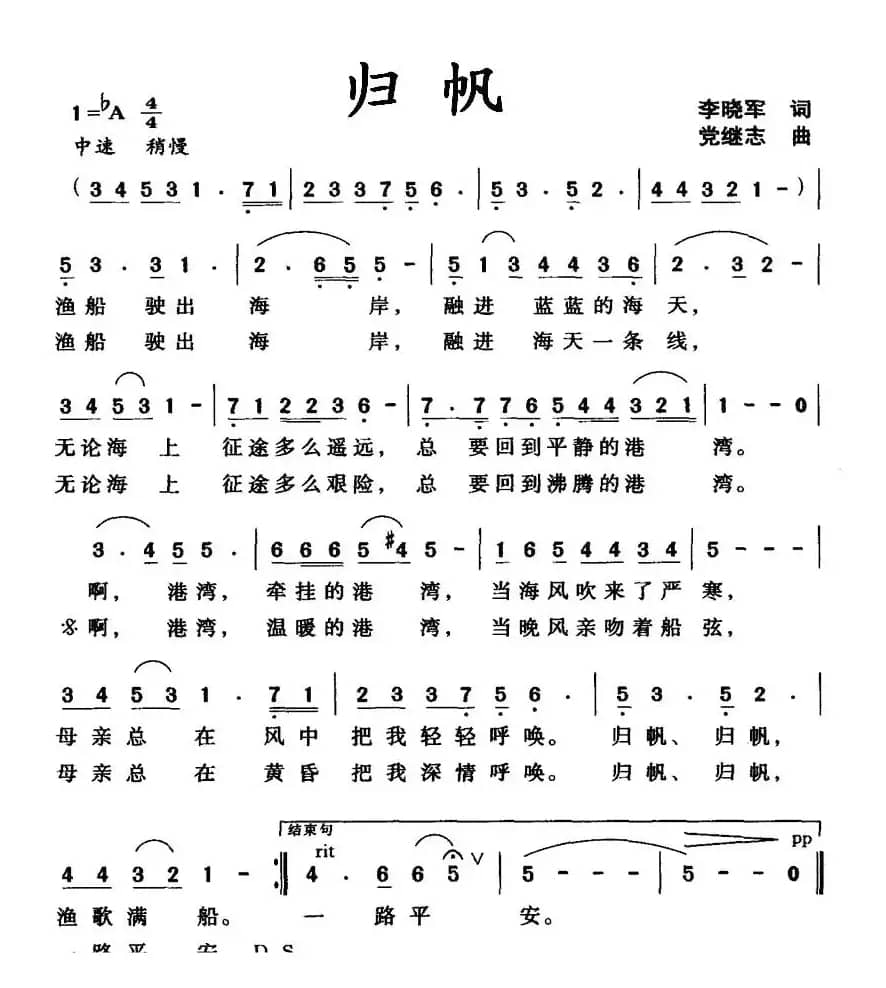 归帆
1=♭A 4/4
李晓军 词
中速 稍慢
党继志 曲
( 3 4 5 3 1 · 7 1 | 2 3 3 7 5 6 · | 5 3 · 5 2 · | 4 4 3 2 1 - ) |
5 3 · 3 1 · | 2 · 6 5 5 - | 5 1 3 4 4 3 6 | 2 · 3 2 - |
渔船 驶出 海 岸, 融进 蓝蓝的海天,
渔船 驶出 海 岸, 融进 海天一条线,
3 4 5 3 1 - | 7 1 2 2 3 6 - | 7 · 7 7 6 5 4 4 3 2 1 | 1 - - 0 |
无论海 上 征途多么遥远, 总 要回到平静的港 湾。
无论海 上 征途多么艰险, 总 要回到沸腾的港 湾。
3 · 4 5 5 · | 6 6 6 5 #4 5 - | 1 6 5 4 4 3 4 | 5 - - - |
啊, 港湾, 牵挂的港 湾, 当海风吹来了严寒,
啊, 港湾, 温暖的港 湾, 当晚风亲吻着船弦,
3 4 5 3 1 · 7 1 | 2 3 3 7 5 6 · | 5 3 · 5 2 · |
母亲总 在 风中 把我轻轻呼唤。 归帆、 归帆,
母亲总 在 黄昏 把我深情呼唤。 归帆、 归帆,
结束句
rit pp
4 4 3 2 1 - :‖ 4 · 6 6 5 ∨ | 5 - - - | 5 - - 0 ‖
渔歌满 船。 一 路平 安。
一路平 安 D.S.